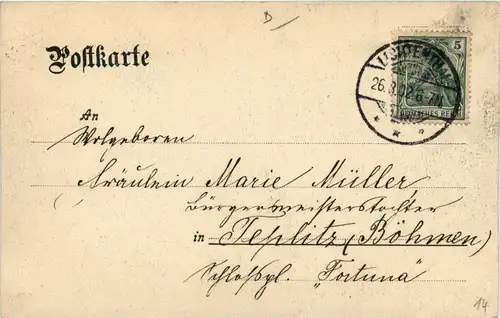 D
Postkarte
5
DEUTSCHES REICH
An
Wolgeboren
Fräulein Marie Müller,
Bürgermeisterstochter
in Teplitz (Böhmen)
Schlossspl. "Fortuna"
14